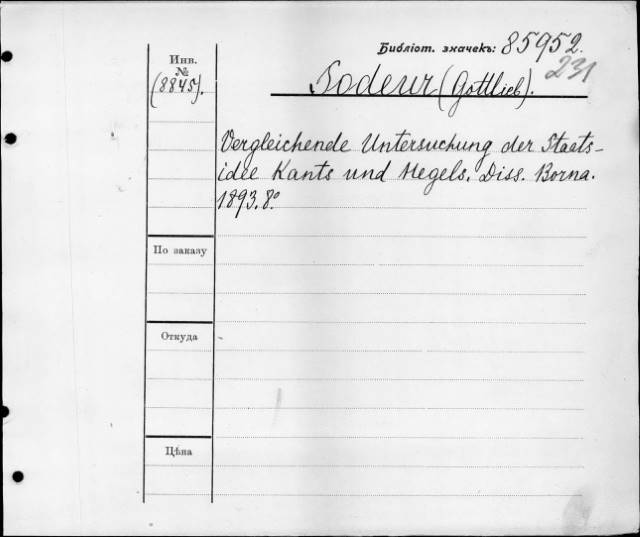 Библіот. значекъ: 85952.
231
Инв.
№
(8845).
Bodeux (Gottlieb).
Vergleichende Untersuchung der Staats-
idee Kants und Hegels. Diss. Borna.
1893. 8º
По заказу
Откуда
Цѣна